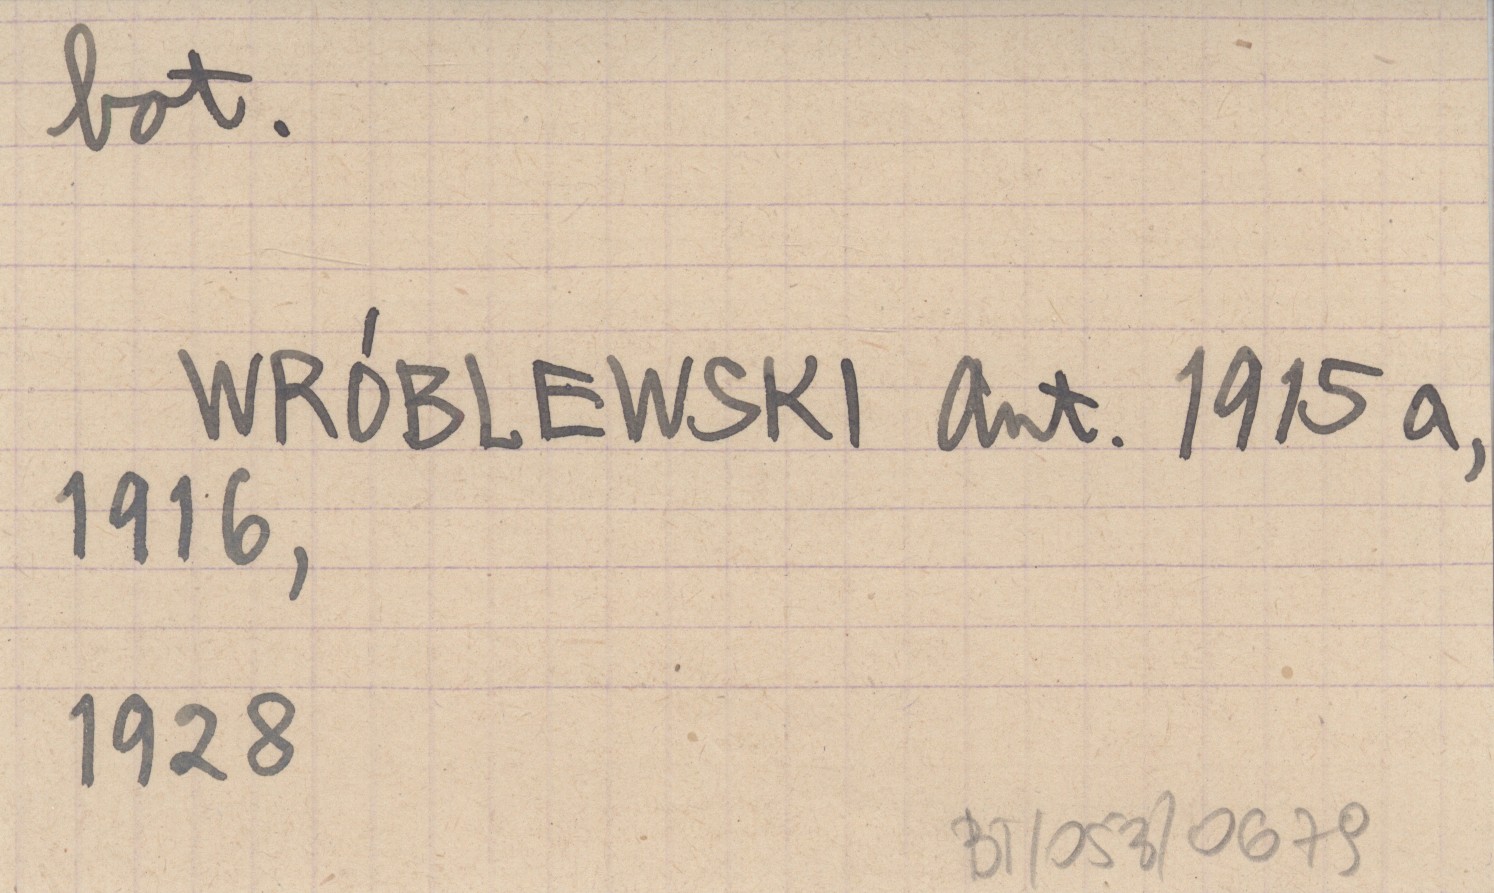 bot.
WRÓBLEWSKI Ant. 1915 a,
1916,
1928
BT/053/0679